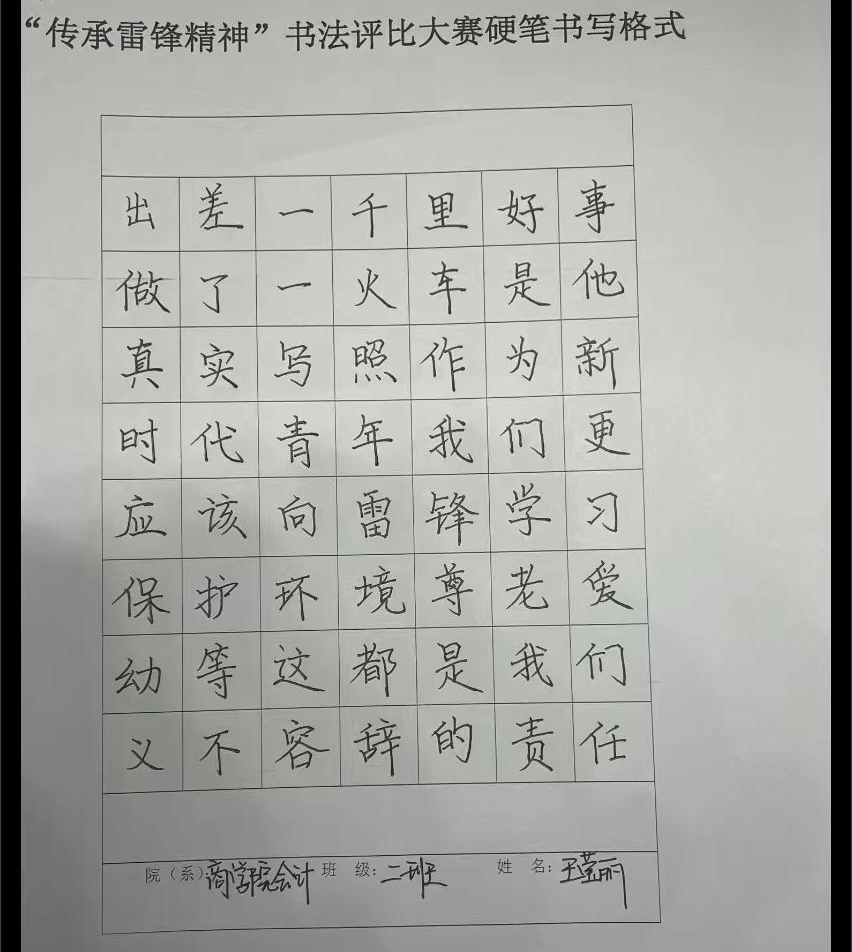 “传承雷锋精神”书法评比大赛硬笔书写格式
出差一千里好事
做了一火车是他
真实写照作为新
时代青年我们更
应该向雷锋学习
保护环境尊老爱
幼等这都是我们
义不容辞的责任
院（系）：商学院会计 班 级：二班 姓 名：王莹丽